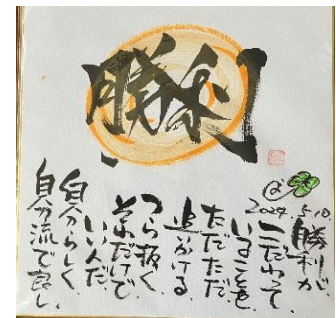 勝利
2024
勝利が
こだわって
いることも
ただただ
追かける
つら抜く
それだけで
いいんだ
自分らしく
自分流で良し